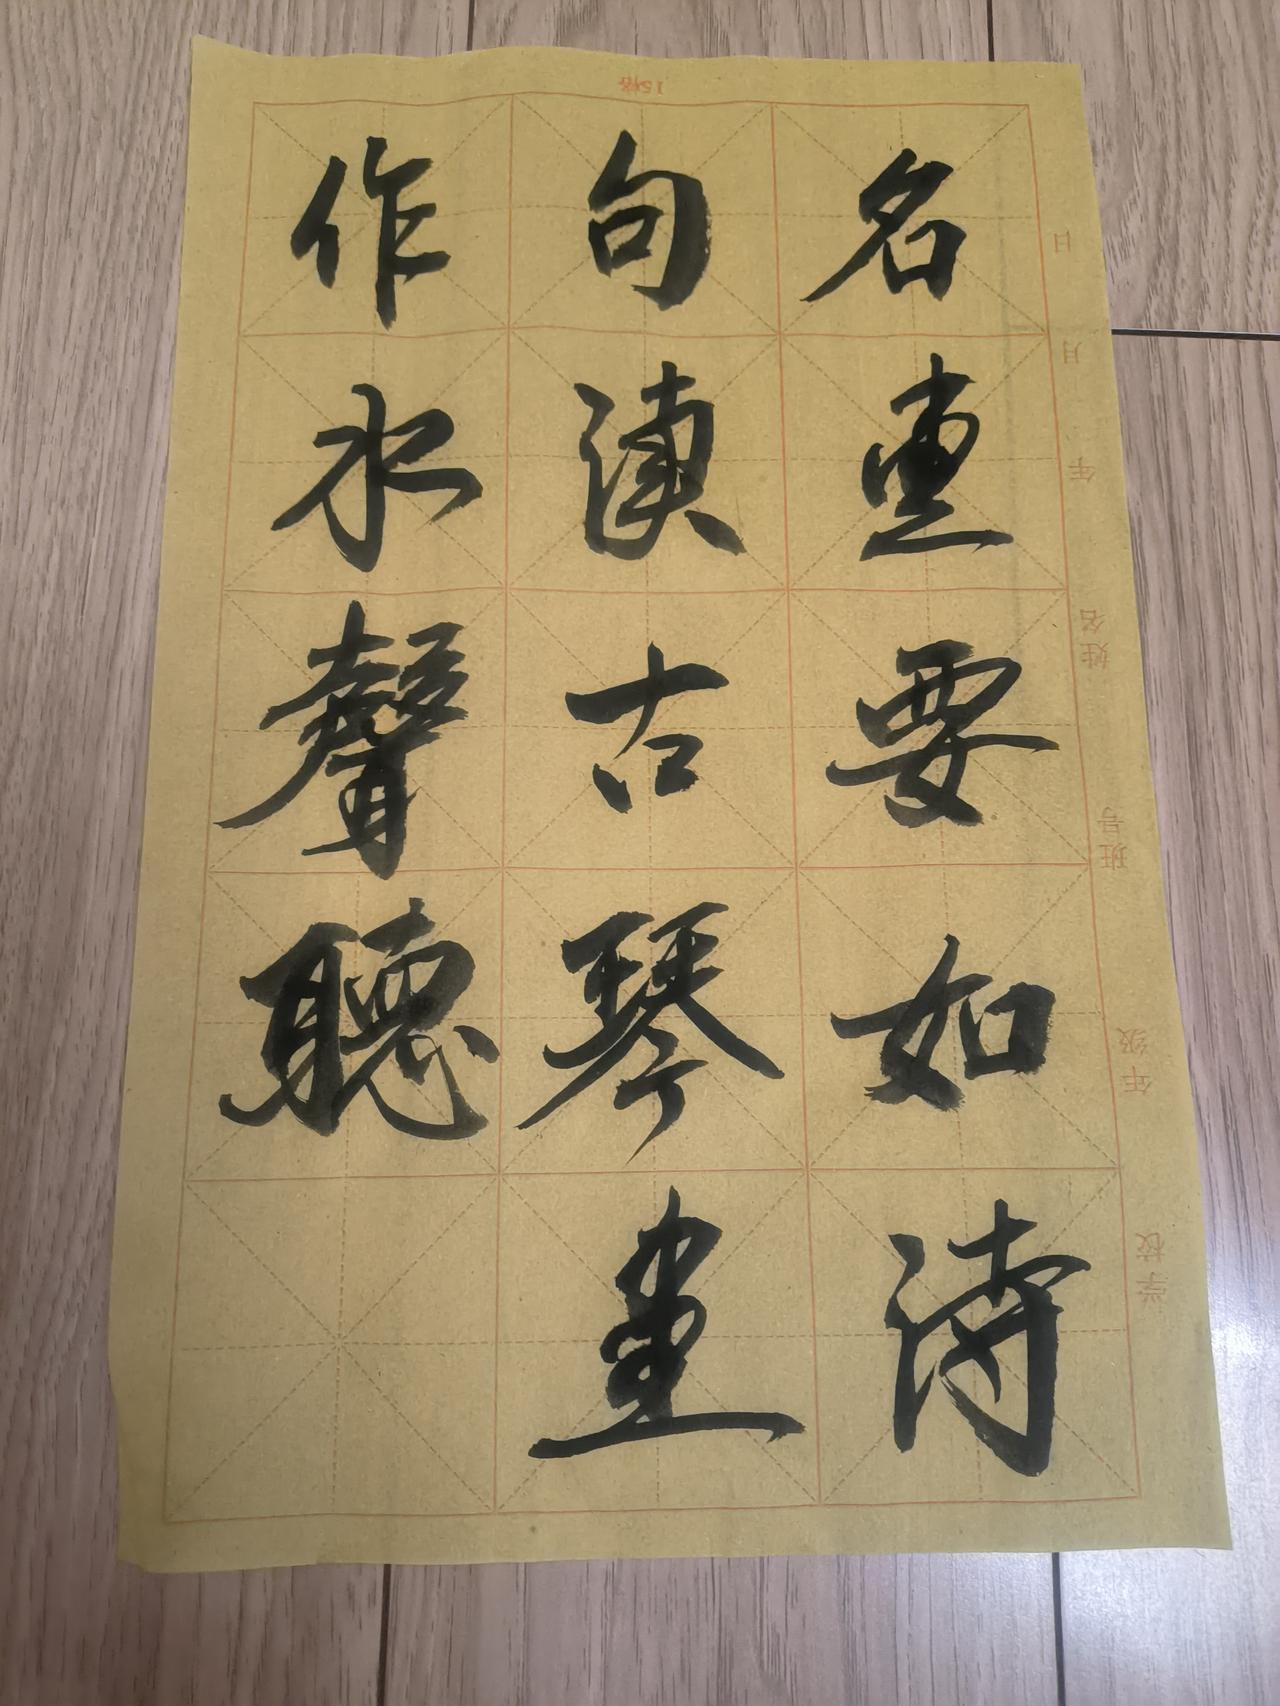 名畫要如詩
句讀古琴
作水聲聽
15格
学校 年级 班号 姓名 年 月 日